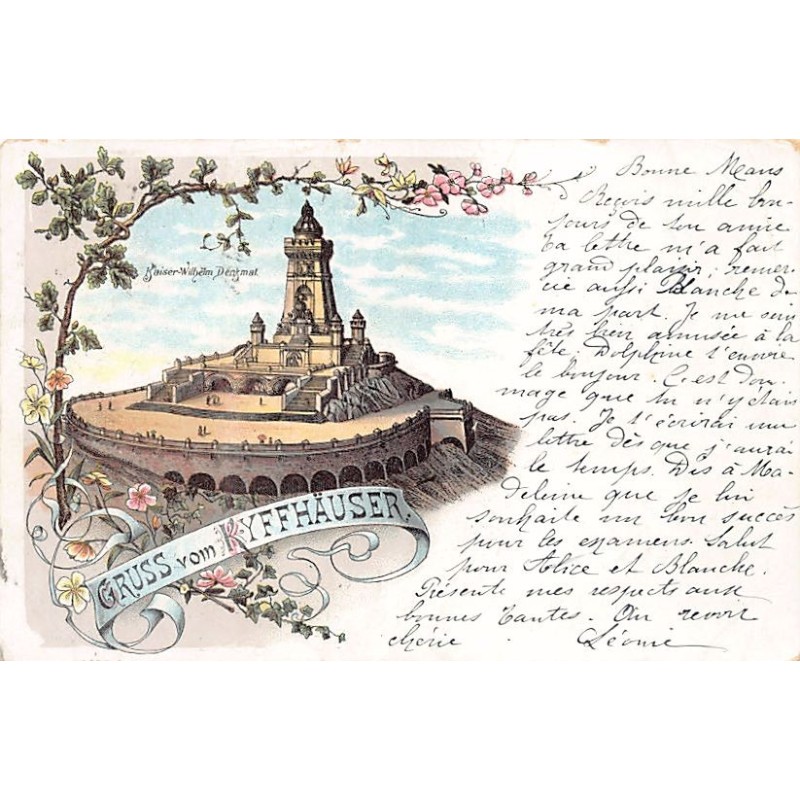 Kaiser-Wilhelm Denkmal
GRUSS vom KYFFHÄUSER.
Bonne Mans
Reçois mille bon-
jours de ton amie
Ta lettre m'a fait
grand plaisir; remer-
cie aussi Blanche de
ma part. Je me suis
très bien amusée à la
fête. Delphine t'envoie
le bonjour. C'est dom-
mage que tu n'y étais
pas. Je t'écrirai une
lettre dès que j'aurai
le temps. Dis à Ma-
deleine que je lui
souhaite un bon succès
pour les examens. Salut
pour Alice et Blanche.
Présente mes respects aux
bonnes tantes. Au revoir
chérie Léonie